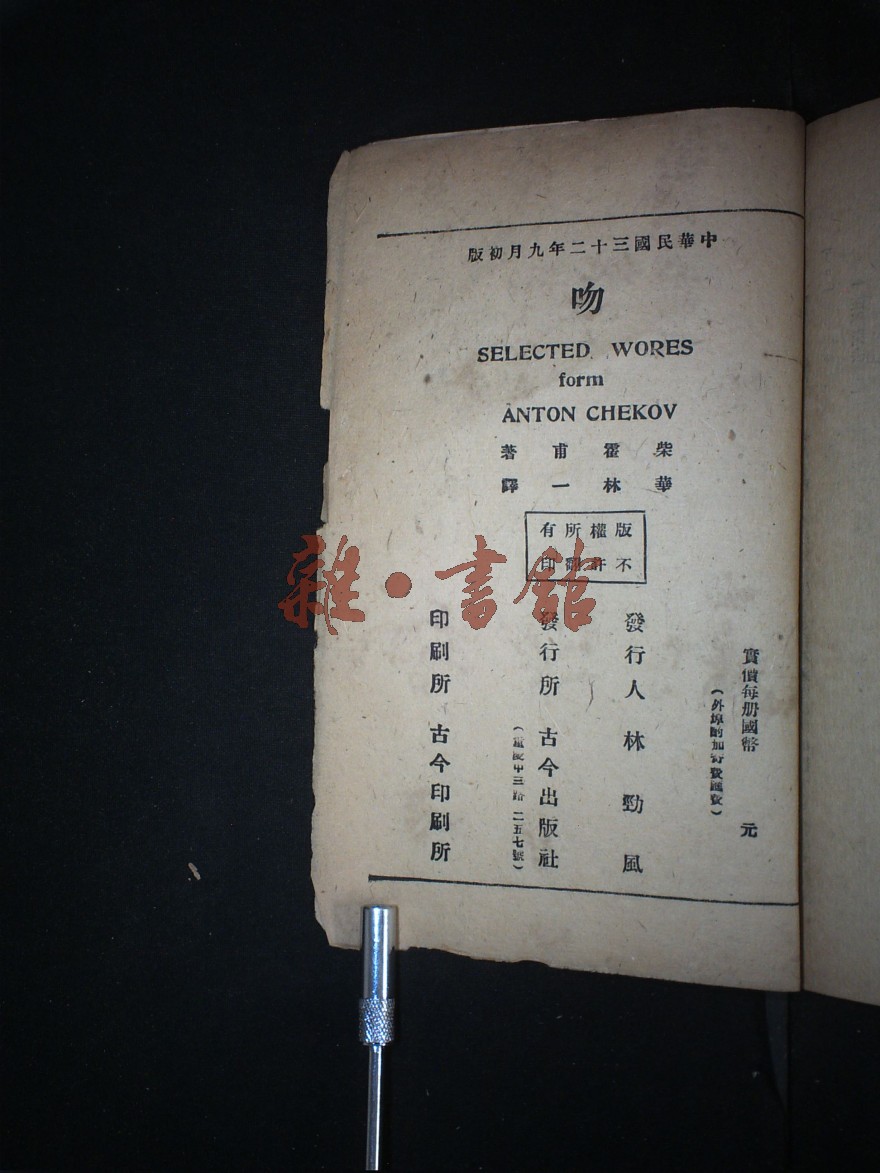 中華民國三十二年九月初版
吻
SELECTED WORES
form
ANTON CHEKOV
柴霍甫著
華林一譯
版權所有
不許翻印
實價每册國幣 元
(外埠酌加寄費匯費)
發行人 林勁風
發行所 古今出版社
(重慶中三路二五七號)
印刷所 古今印刷所
雜·書館